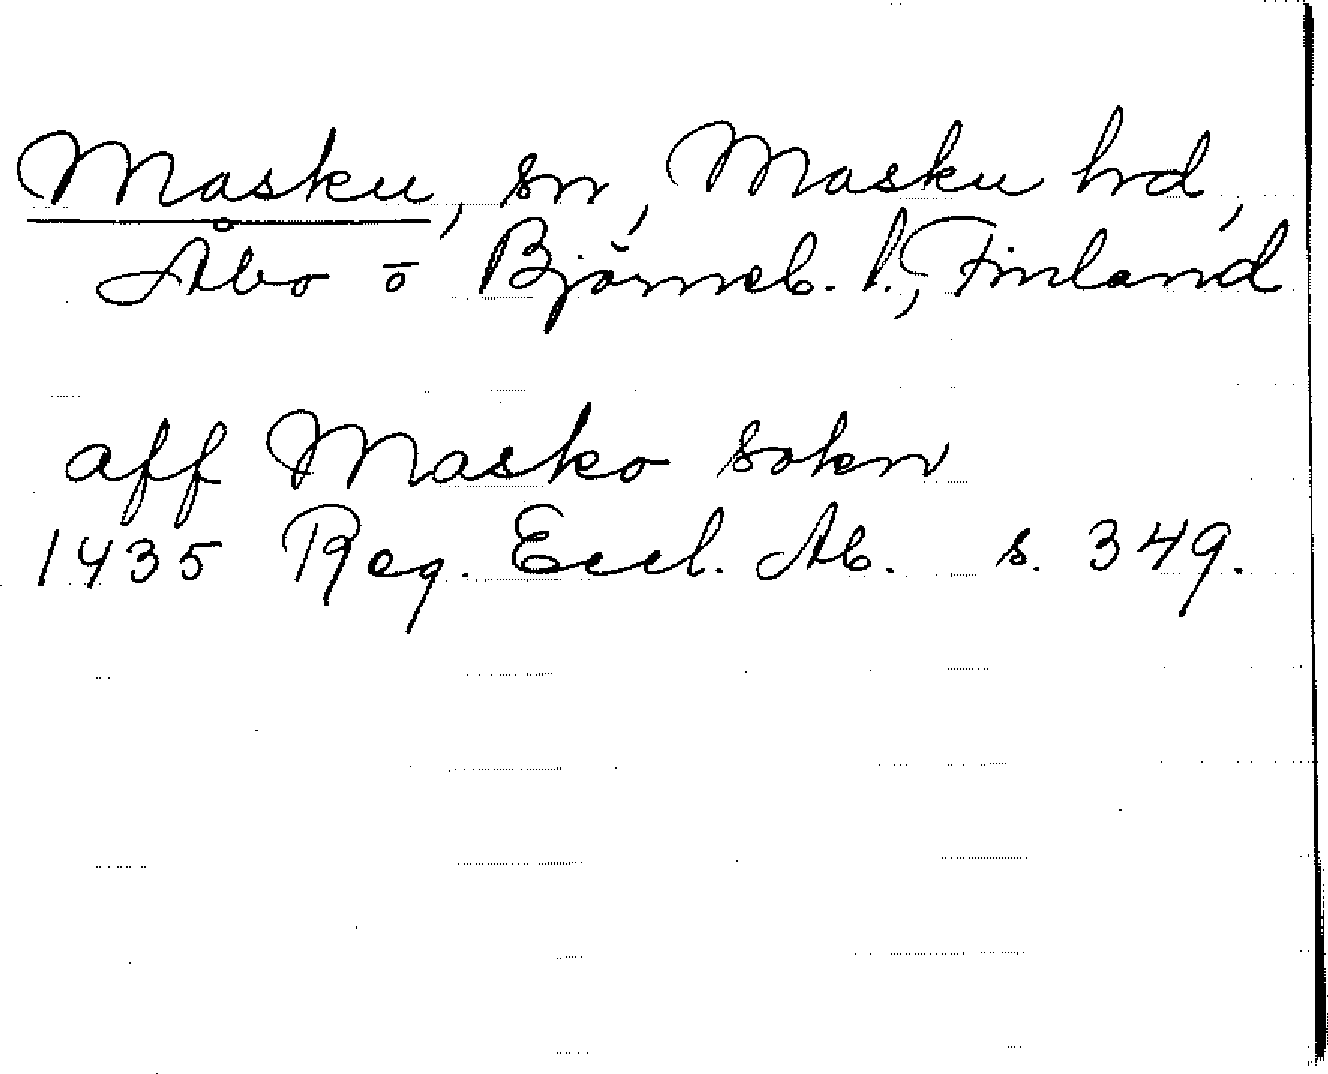 Masku, sn, Masku hrd,
Åbo o Björneb. l., Finland
aff Masko sokn
1435 Reg. Eccl. Ab. s. 349.